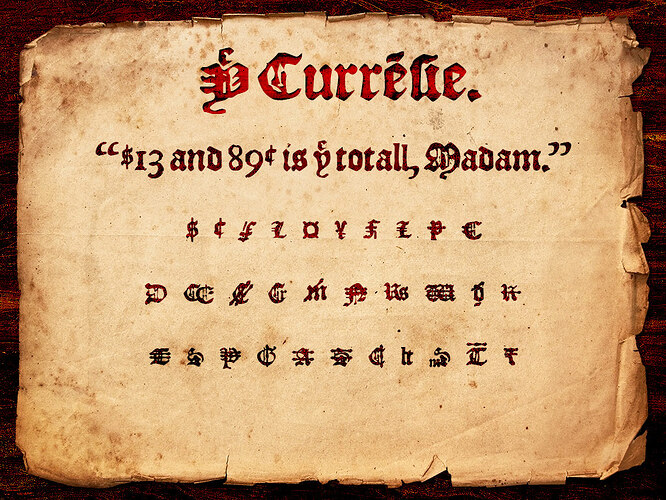 Yͤ Currẽſie.
“$13 and 89¢ is yͤ totall, Madam.”
$ ¢ £ ¤ ¥ €
₠ ₡ ₢ ₥ ₦ ₨ ₩
₱ ₲ ₳ ₴ ₵ ₶ ₷ ₸ ₹